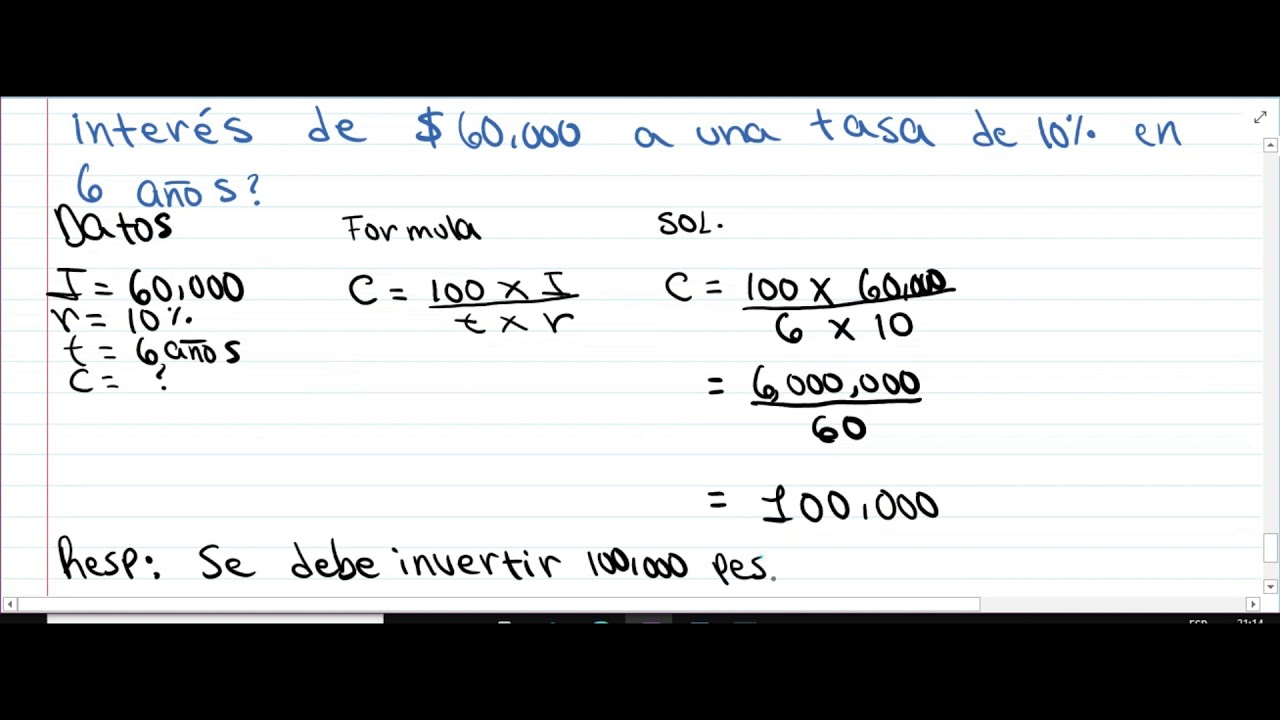 interés de $60,000 a una tasa de 10% en
6 años?
Datos Formula SOL.
I = 60,000 C = 100 x I / t x r C = 100 x 60,000 / 6 x 10
r = 10%
t = 6 años
C = ? = 6,000,000 / 60
= 100,000
Resp: Se debe invertir 100,000 pes.